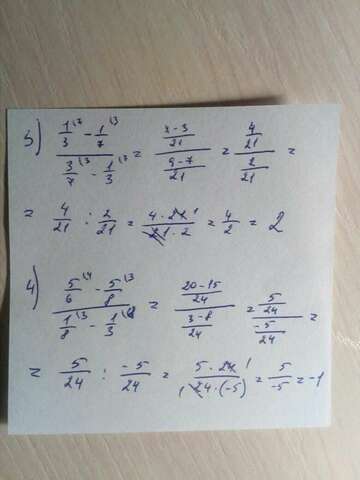 3) (1/3 \7 - 1/7 \3) / (3/7 \3 - 1/3 \7) = ((7-3)/21) / ((9-7)/21) = (4/21) / (2/21) =
= 4/21 : 2/21 = (4·21 1)/(21·2) = 4/2 = 2
4) (5/6 \4 - 5/8 \3) / (1/8 \3 - 1/3 \8) = ((20-15)/24) / ((3-8)/24) = (5/24) / (-5/24) =
= 5/24 : -5/24 = (5·24 1)/(1 24·(-5)) = 5/-5 = -1